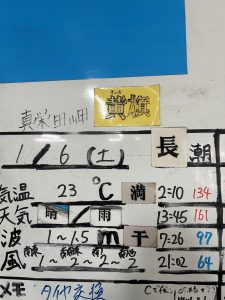 真栄田岬
きいろ
黄旗
1/6(土) 長潮
気温 23 ℃ 満 2:10 134
天気 晴/雨 13:45 161
波 1~1.5 m 干 7:26 97
風 1~2~2~2 21:02 64
メモ